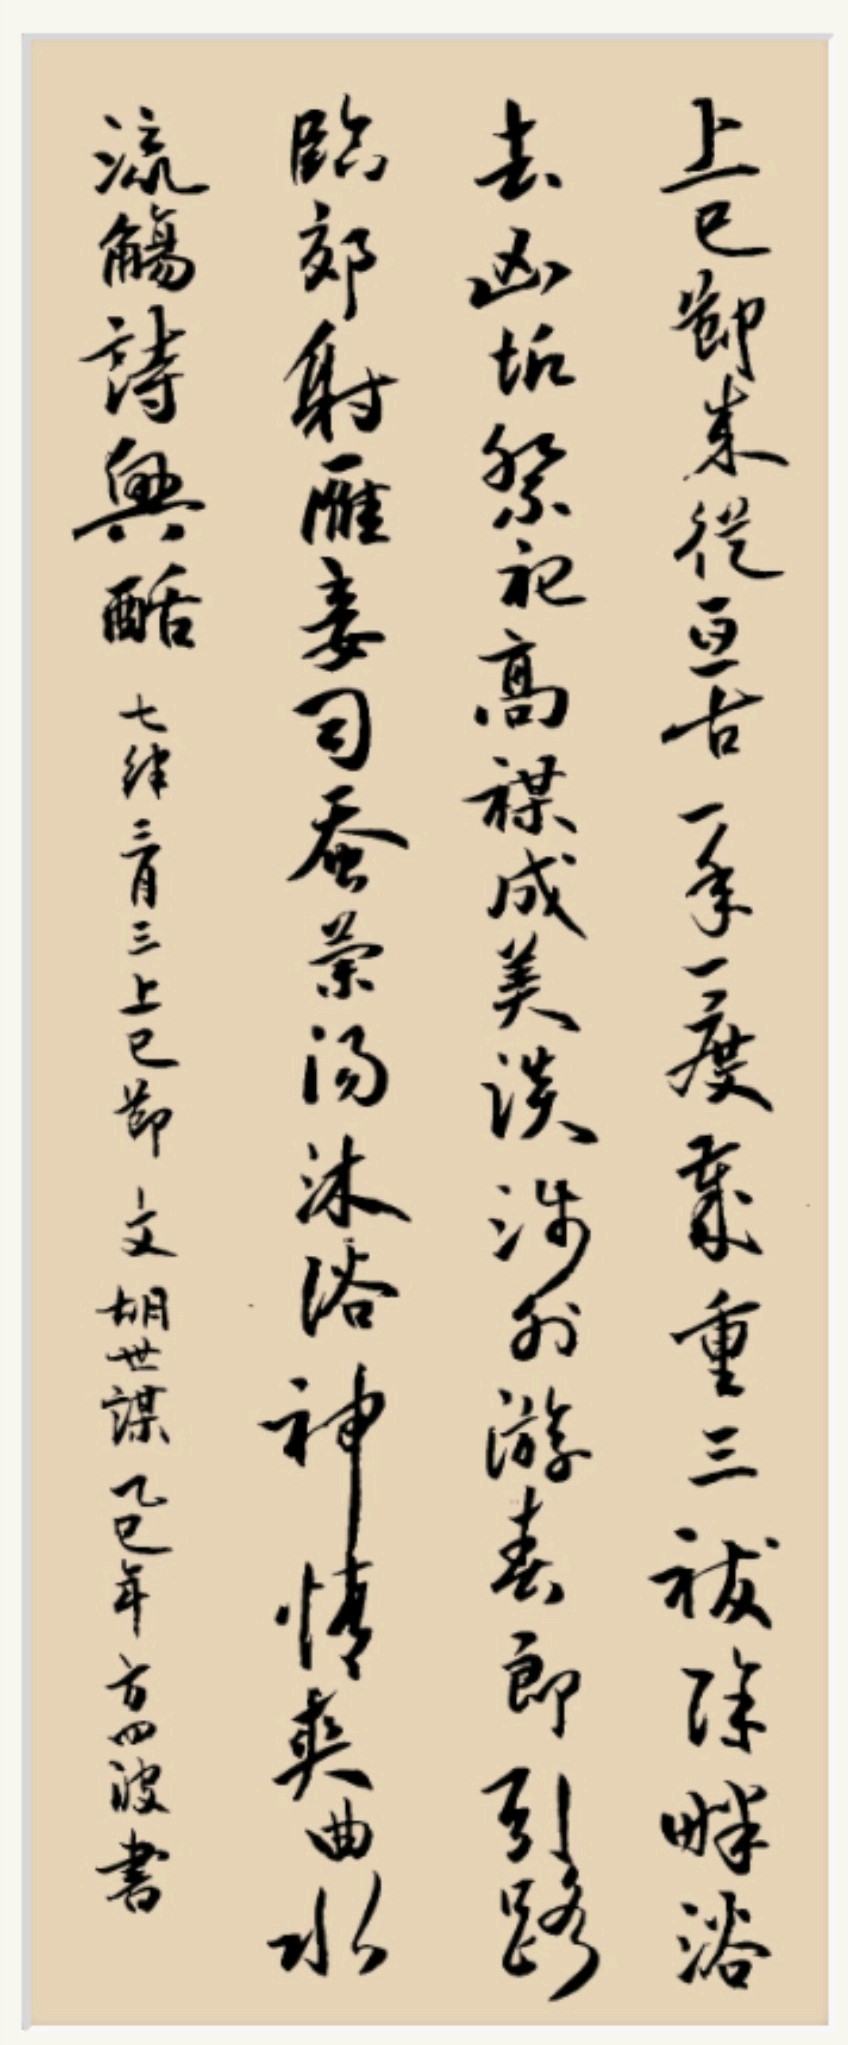 上巳節来從亘古一年一度歲重三祓除畔浴
去凶垢祭祀高禖成美談涉外游春郎引路
臨郊射雁妾司蚕蘭湯沐浴神情爽曲水
流觴詩興酣 七律 三月三上巳節 文 胡世謀 乙巳年 方四波書